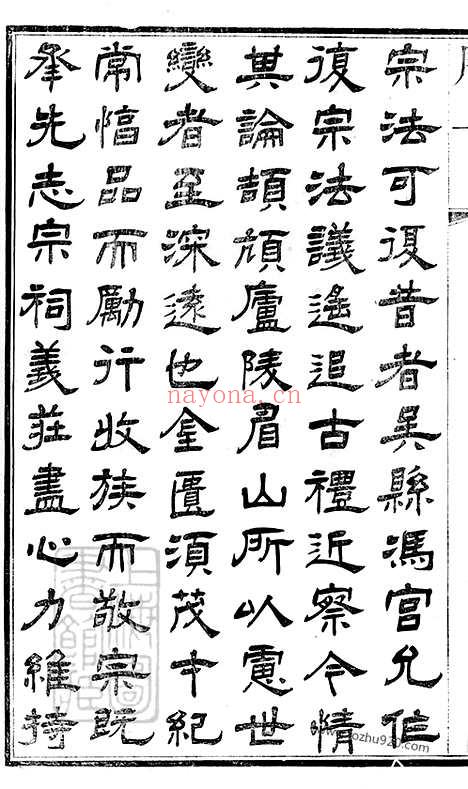 宗法可復昔者吳縣馮宮允作
復宗法議遙追古禮近察今情
其論頡頏廬陵眉山所以慮世
變者至深遠也金匱須茂才紀
常愊品而勵行收族而敬宗既
承先志宗祠義莊盡心力維持
nayona.cn